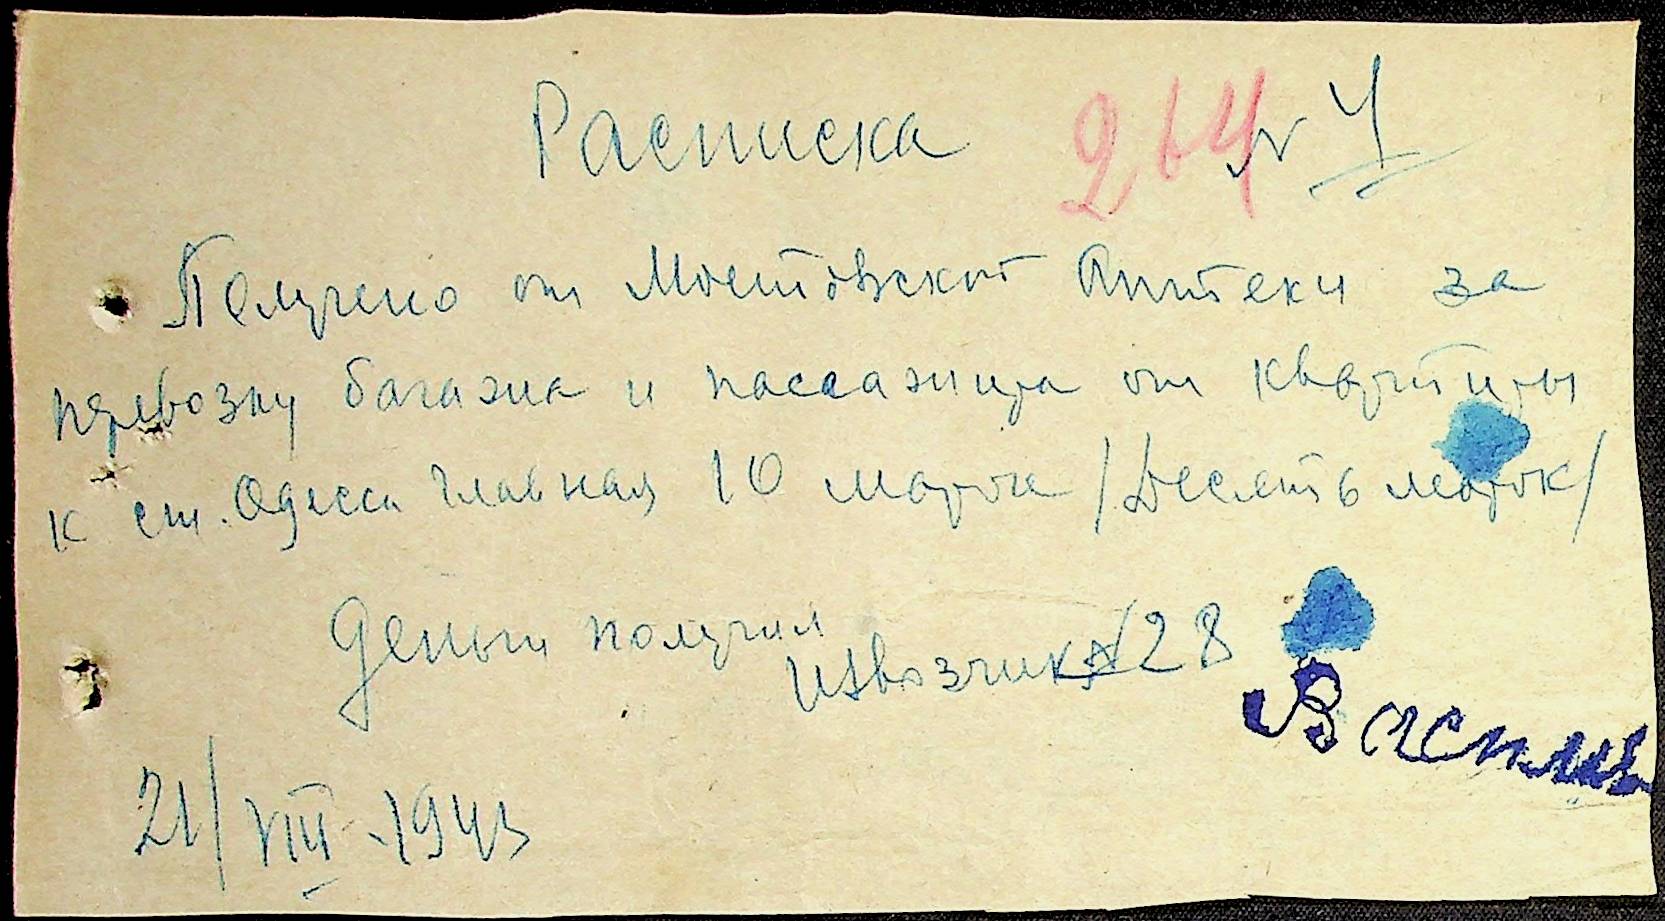 Расписка 264 № 4
Получено от Мостовской Аптеки за
перевозку багажа и пассажира от квартиры
к ст. Одесса Главная 10 марок /Десять марок/
Деньги получил
Извозчик № 28
Васильев
21/VIII-1943